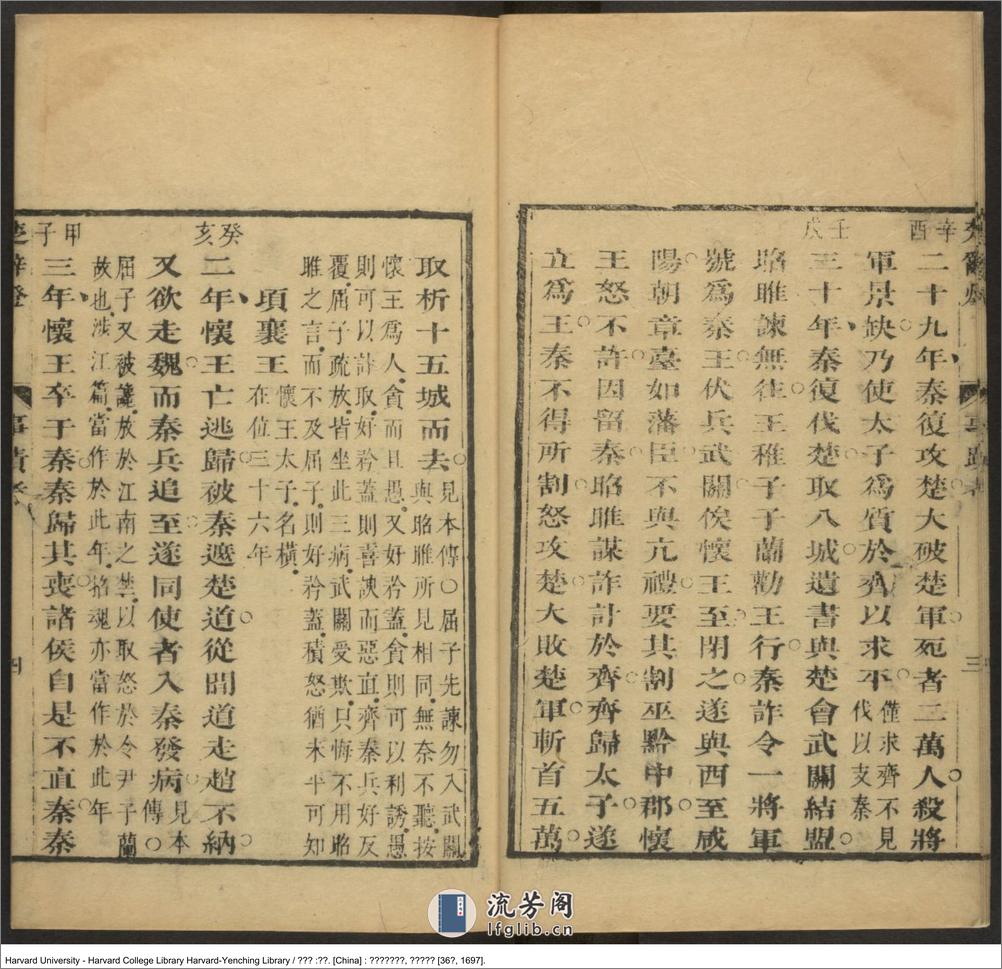 辛酉
二十九年秦復攻楚大破楚軍死者二萬人殺將
軍景缺乃使太子爲質於齊以求平僅求齊不見
伐以支秦
壬戌
三十年秦復伐楚取八城遺書與楚會武關結盟
昭睢諫無往王稚子子蘭勸王行秦詐令一將軍
號爲秦王伏兵武關俟懷王至閉之遂與西至咸
陽朝章臺如藩臣不與亢禮要其割巫黔中郡懷
王怒不許因留秦昭睢謀詐計於齊齊歸太子遂
立爲王秦不得所割怒攻楚大敗楚軍斬首五萬
三
取析十五城而去見本傳○屈子先諫勿入武關
與昭睢所見相同無奈不聽按
懷王爲人貪而且愚又好矜蓋貪則可以利誘愚
則可以詐取好矜蓋則喜諛而惡直齊秦兵好反
覆屈子疏放皆坐此三病武關受欺只悔不用昭
睢之言而不及屈子則好矜蓋積怒猶未平可知
頃襄王懷王太子名橫
在位三十六年
癸亥
二年懷王亡逃歸被秦遮楚道從間道走趙不納
又欲走魏而秦兵追至遂同使者入秦發病見本
傳○
屈子又被讒放於江南之埜以取怒於令尹子蘭
故也涉江篇當作於此年招魂亦當作於此年
甲子
三年懷王卒于秦秦歸其喪諸侯自是不直秦秦
楚辭燈
事蹟考
四
流芳阁
lfglib.cn
Harvard University - Harvard College Library Harvard-Yenching Library / ??? :??. [China] : ???????, ????? [36?, 1697].